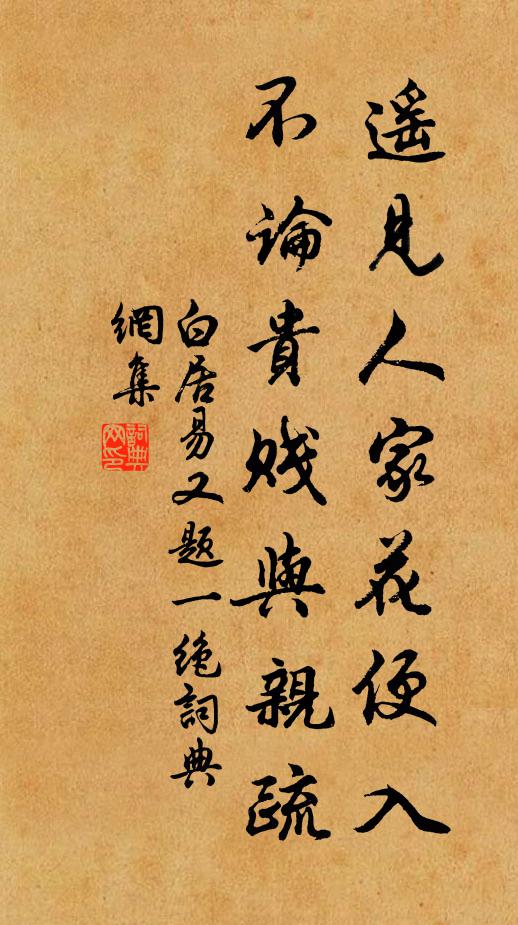 遥見人家花便入
不論貴賤與親疏
白居易又题一絶詞典
網集
詞典
网印